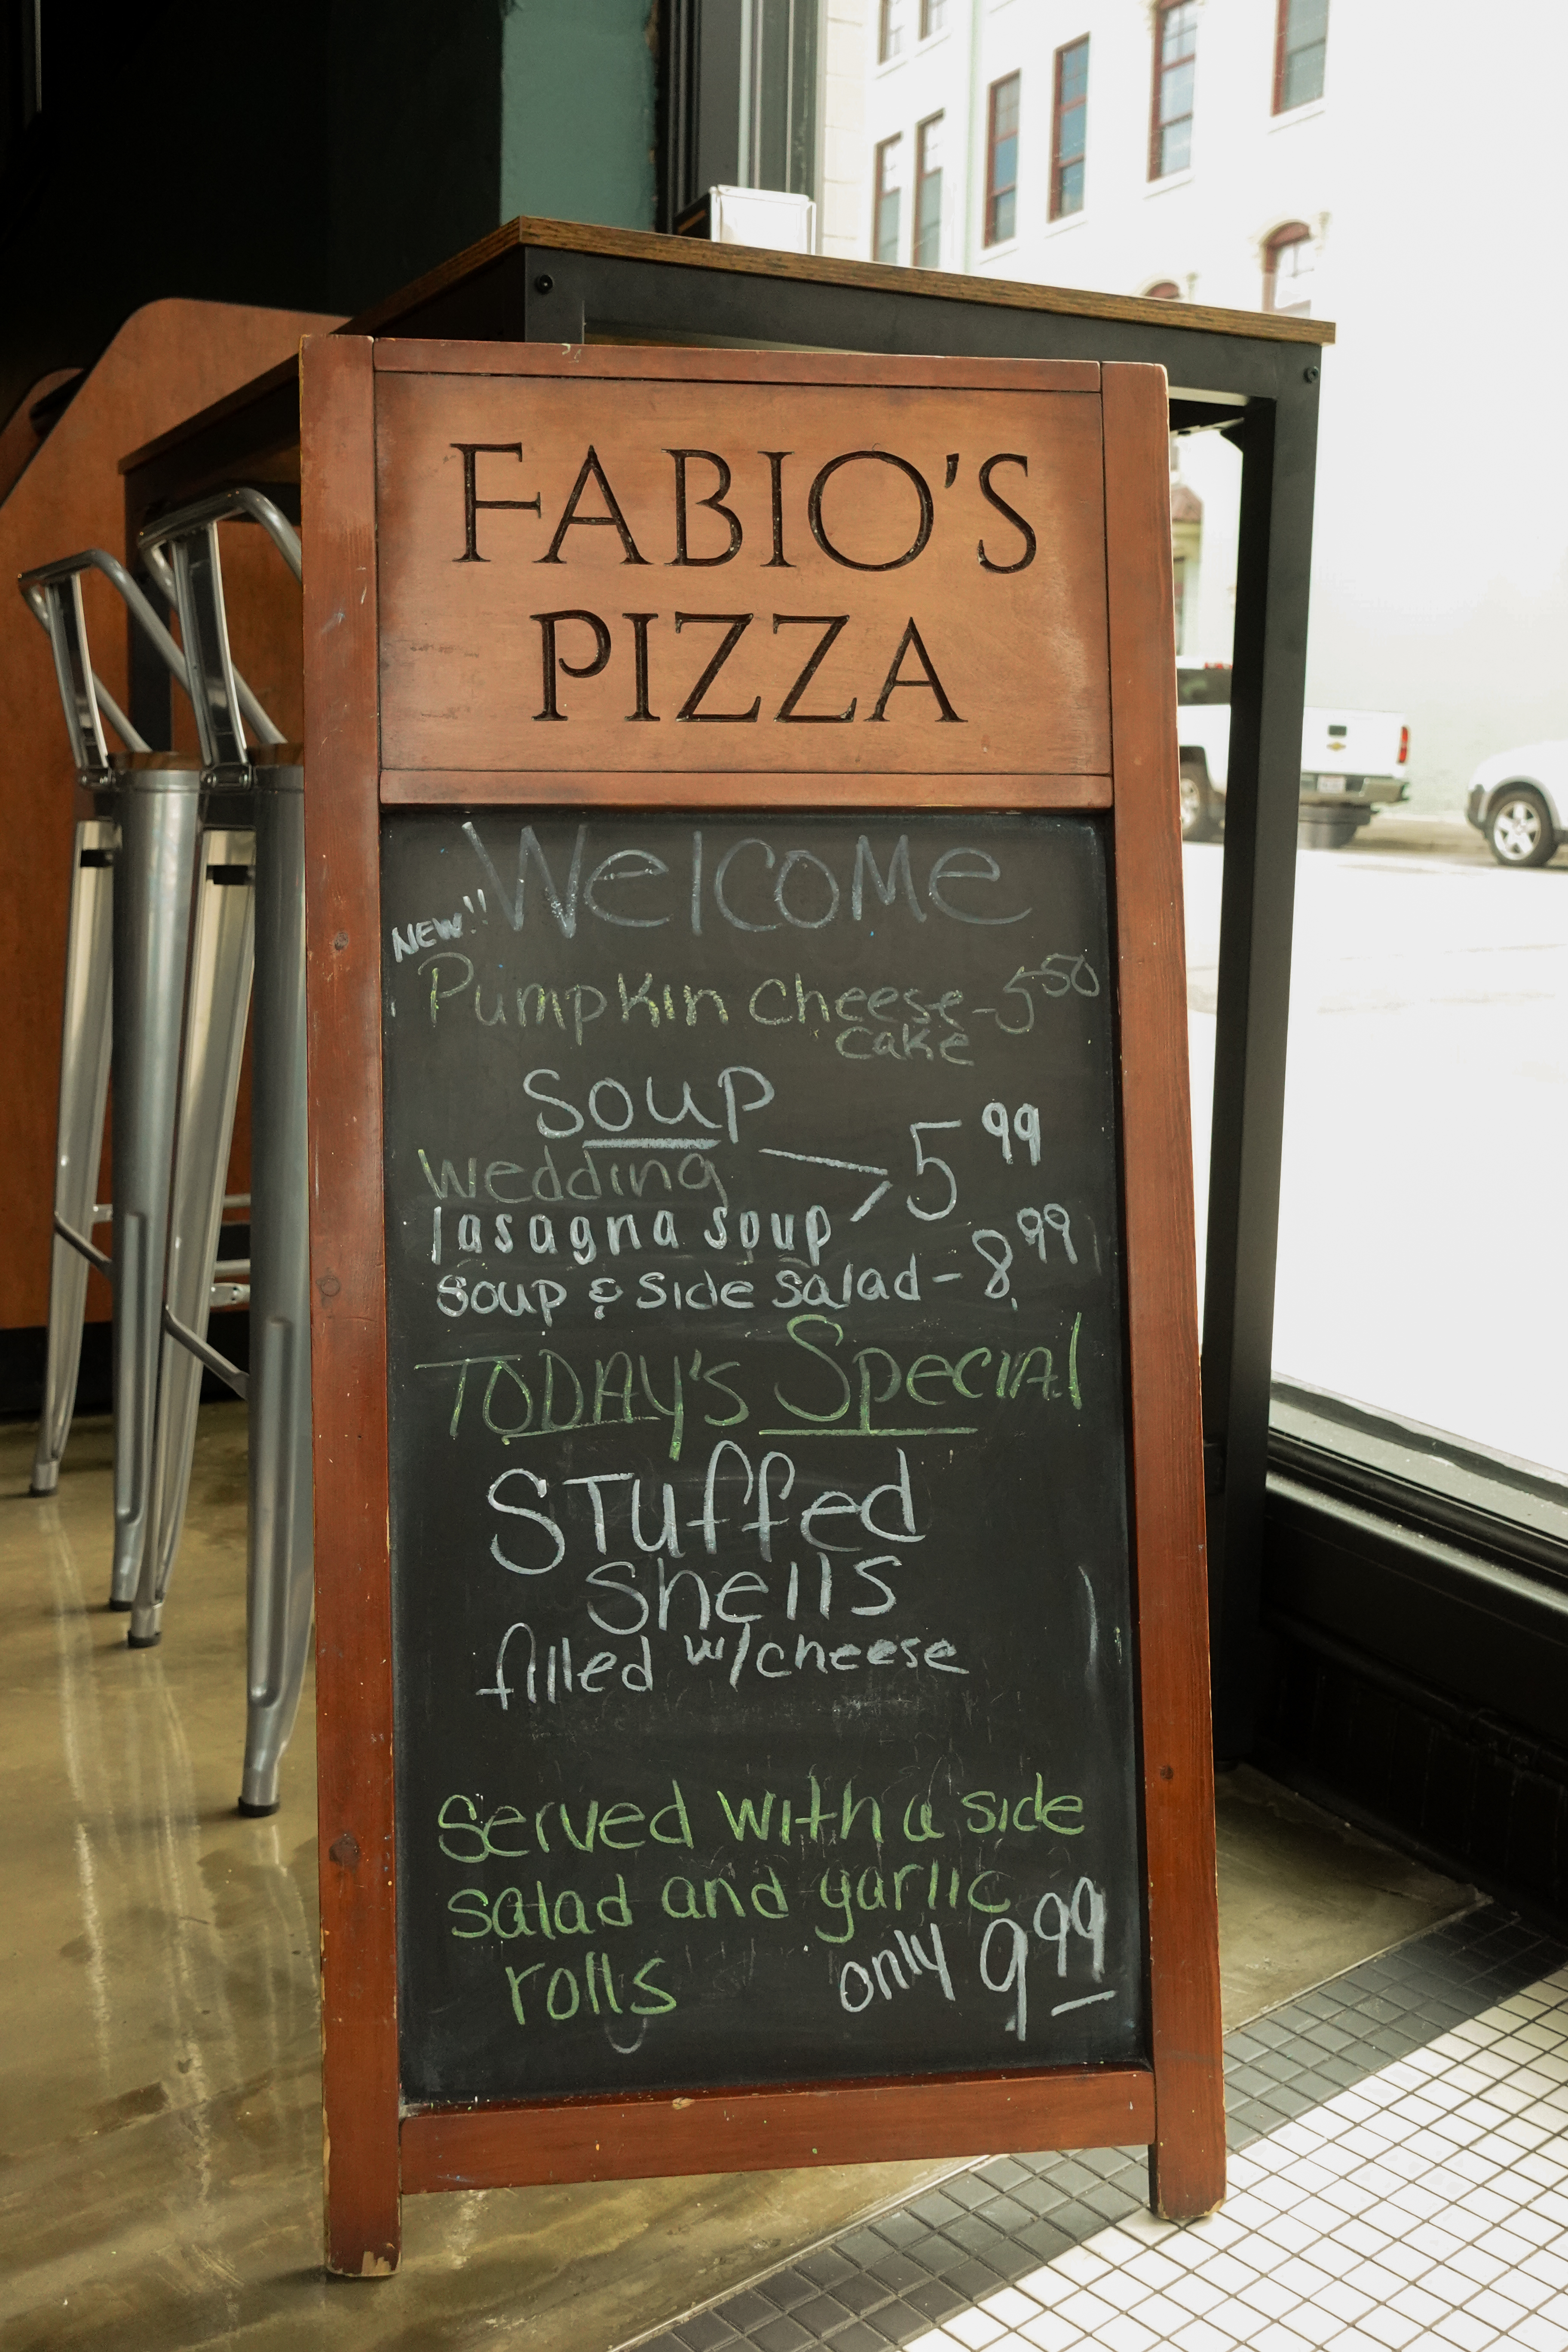 FABIO'S
PIZZA
Welcome
NEW!!
Pumpkin Cheese - 5 50
cake
Soup
Wedding
5 99
lasagna soup
Soup & Side Salad - 8.99
TODAY'S Special
Stuffed
Shells
filled w/cheese
Served with a side
salad and garlic
rolls
only 9 99